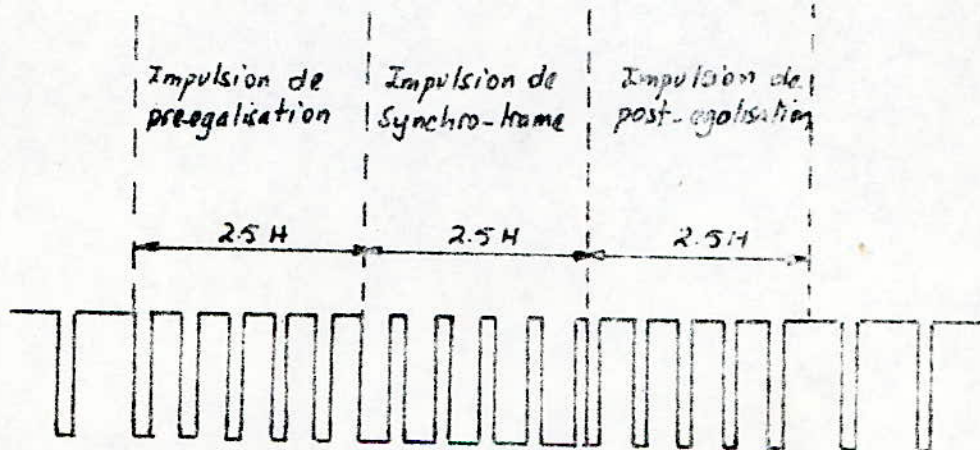 Impulsion de
pre-egalisation
Impulsion de
Synchro-trame
Impulsion de
post-egalisation
2.5 H
2.5 H
2.5 H